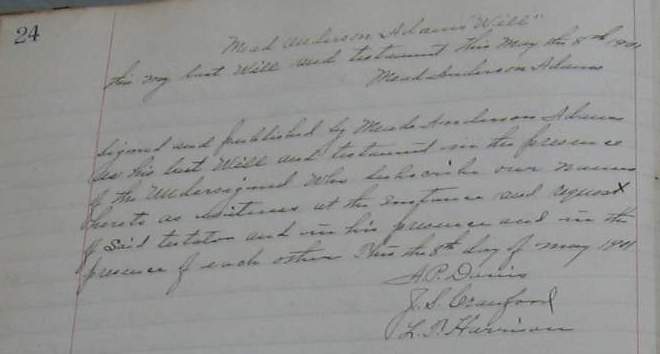 24
Mead Anderson Adams "Will"
this my last Will and testament this May the 8th 1901
Mead Anderson Adams
signed and published by Meade Anderson Adams
as his last Will and testament in the presence
of the Undersigned Who subscribe our names
hereto as witness at the instance and request
of said testator and in his presence and in the
presence of each other This the 8th day of May 1901
A.P. Davis
J.S. Crawford
L.P. Harrison